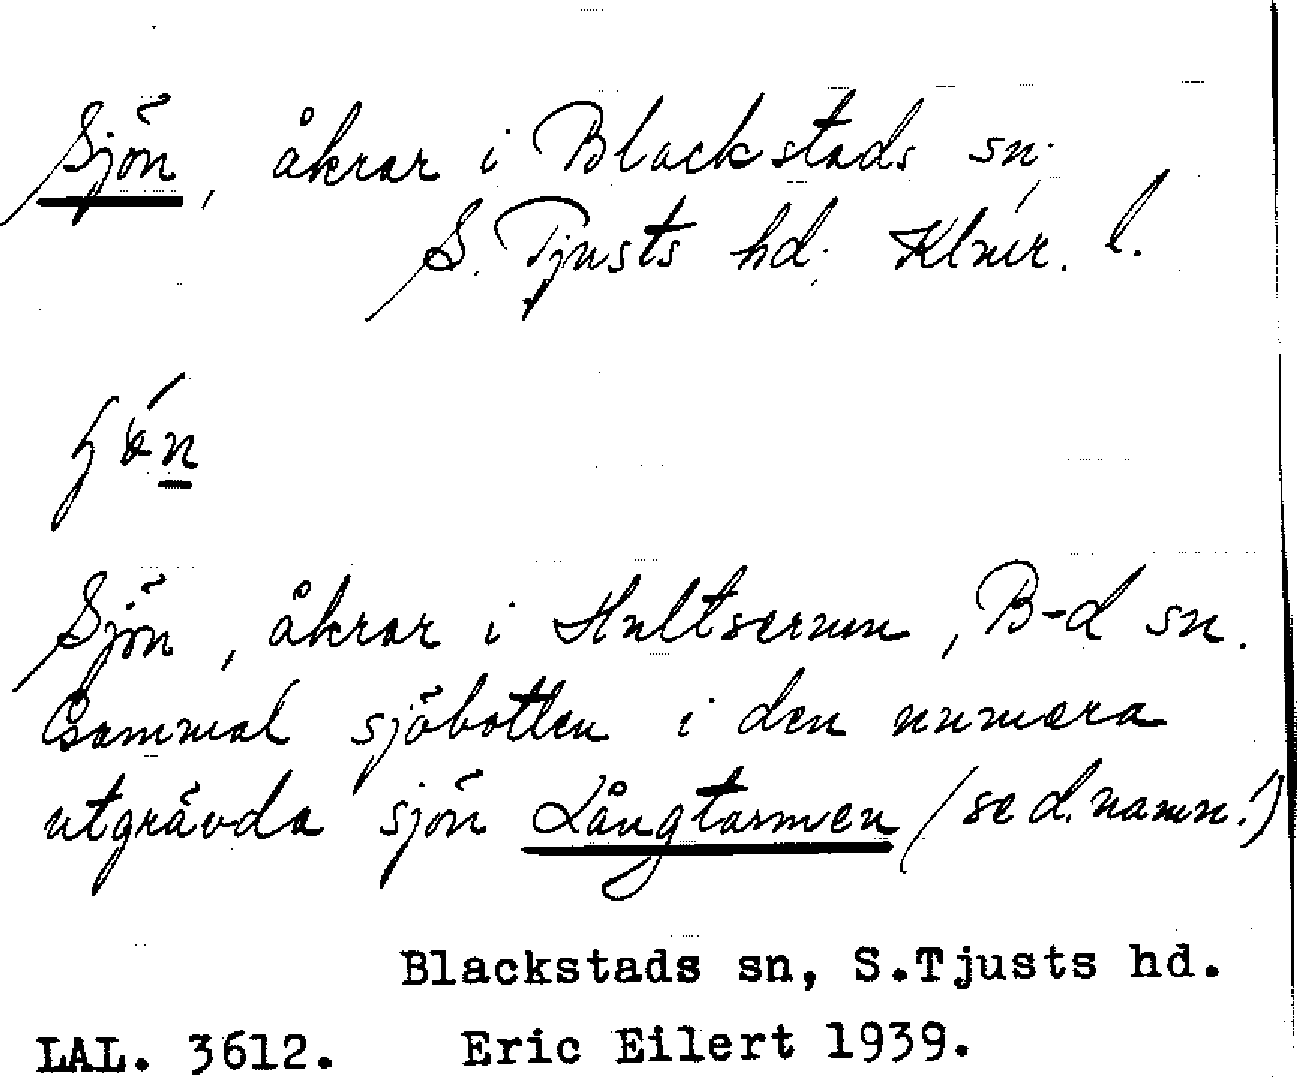 Sjön, åkrar i Blackstads sn,
S. Tjusts hd. Klmr. l.
Sjön, åkrar i Hultserum, B-d sn.
Gammal sjöbotten i den numera
utgrävda sjön Långtarmen (se d. namn!)
Blackstads sn, S.Tjusts hd.
LAL. 3612. Eric Eilert 1939.